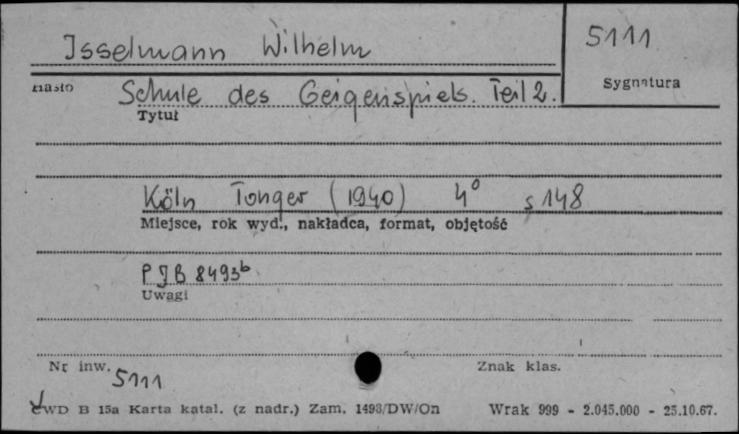 Isselmann Wilhelm
5111
Sygnatura
Hasło
Schule des Geigenspiels. Teil 2.
Tytuł
Köln Tonger (1940) 4° s 148
Miejsce, rok wyd., nakładca, format, objętość
P J B 8493b
Uwagi
Nr inw. 5111
Znak klas.
CWD B 15a Karta katal. (z nadr.) Zam. 1493/DW/On Wrak 999 - 2.045.000 - 25.10.67.